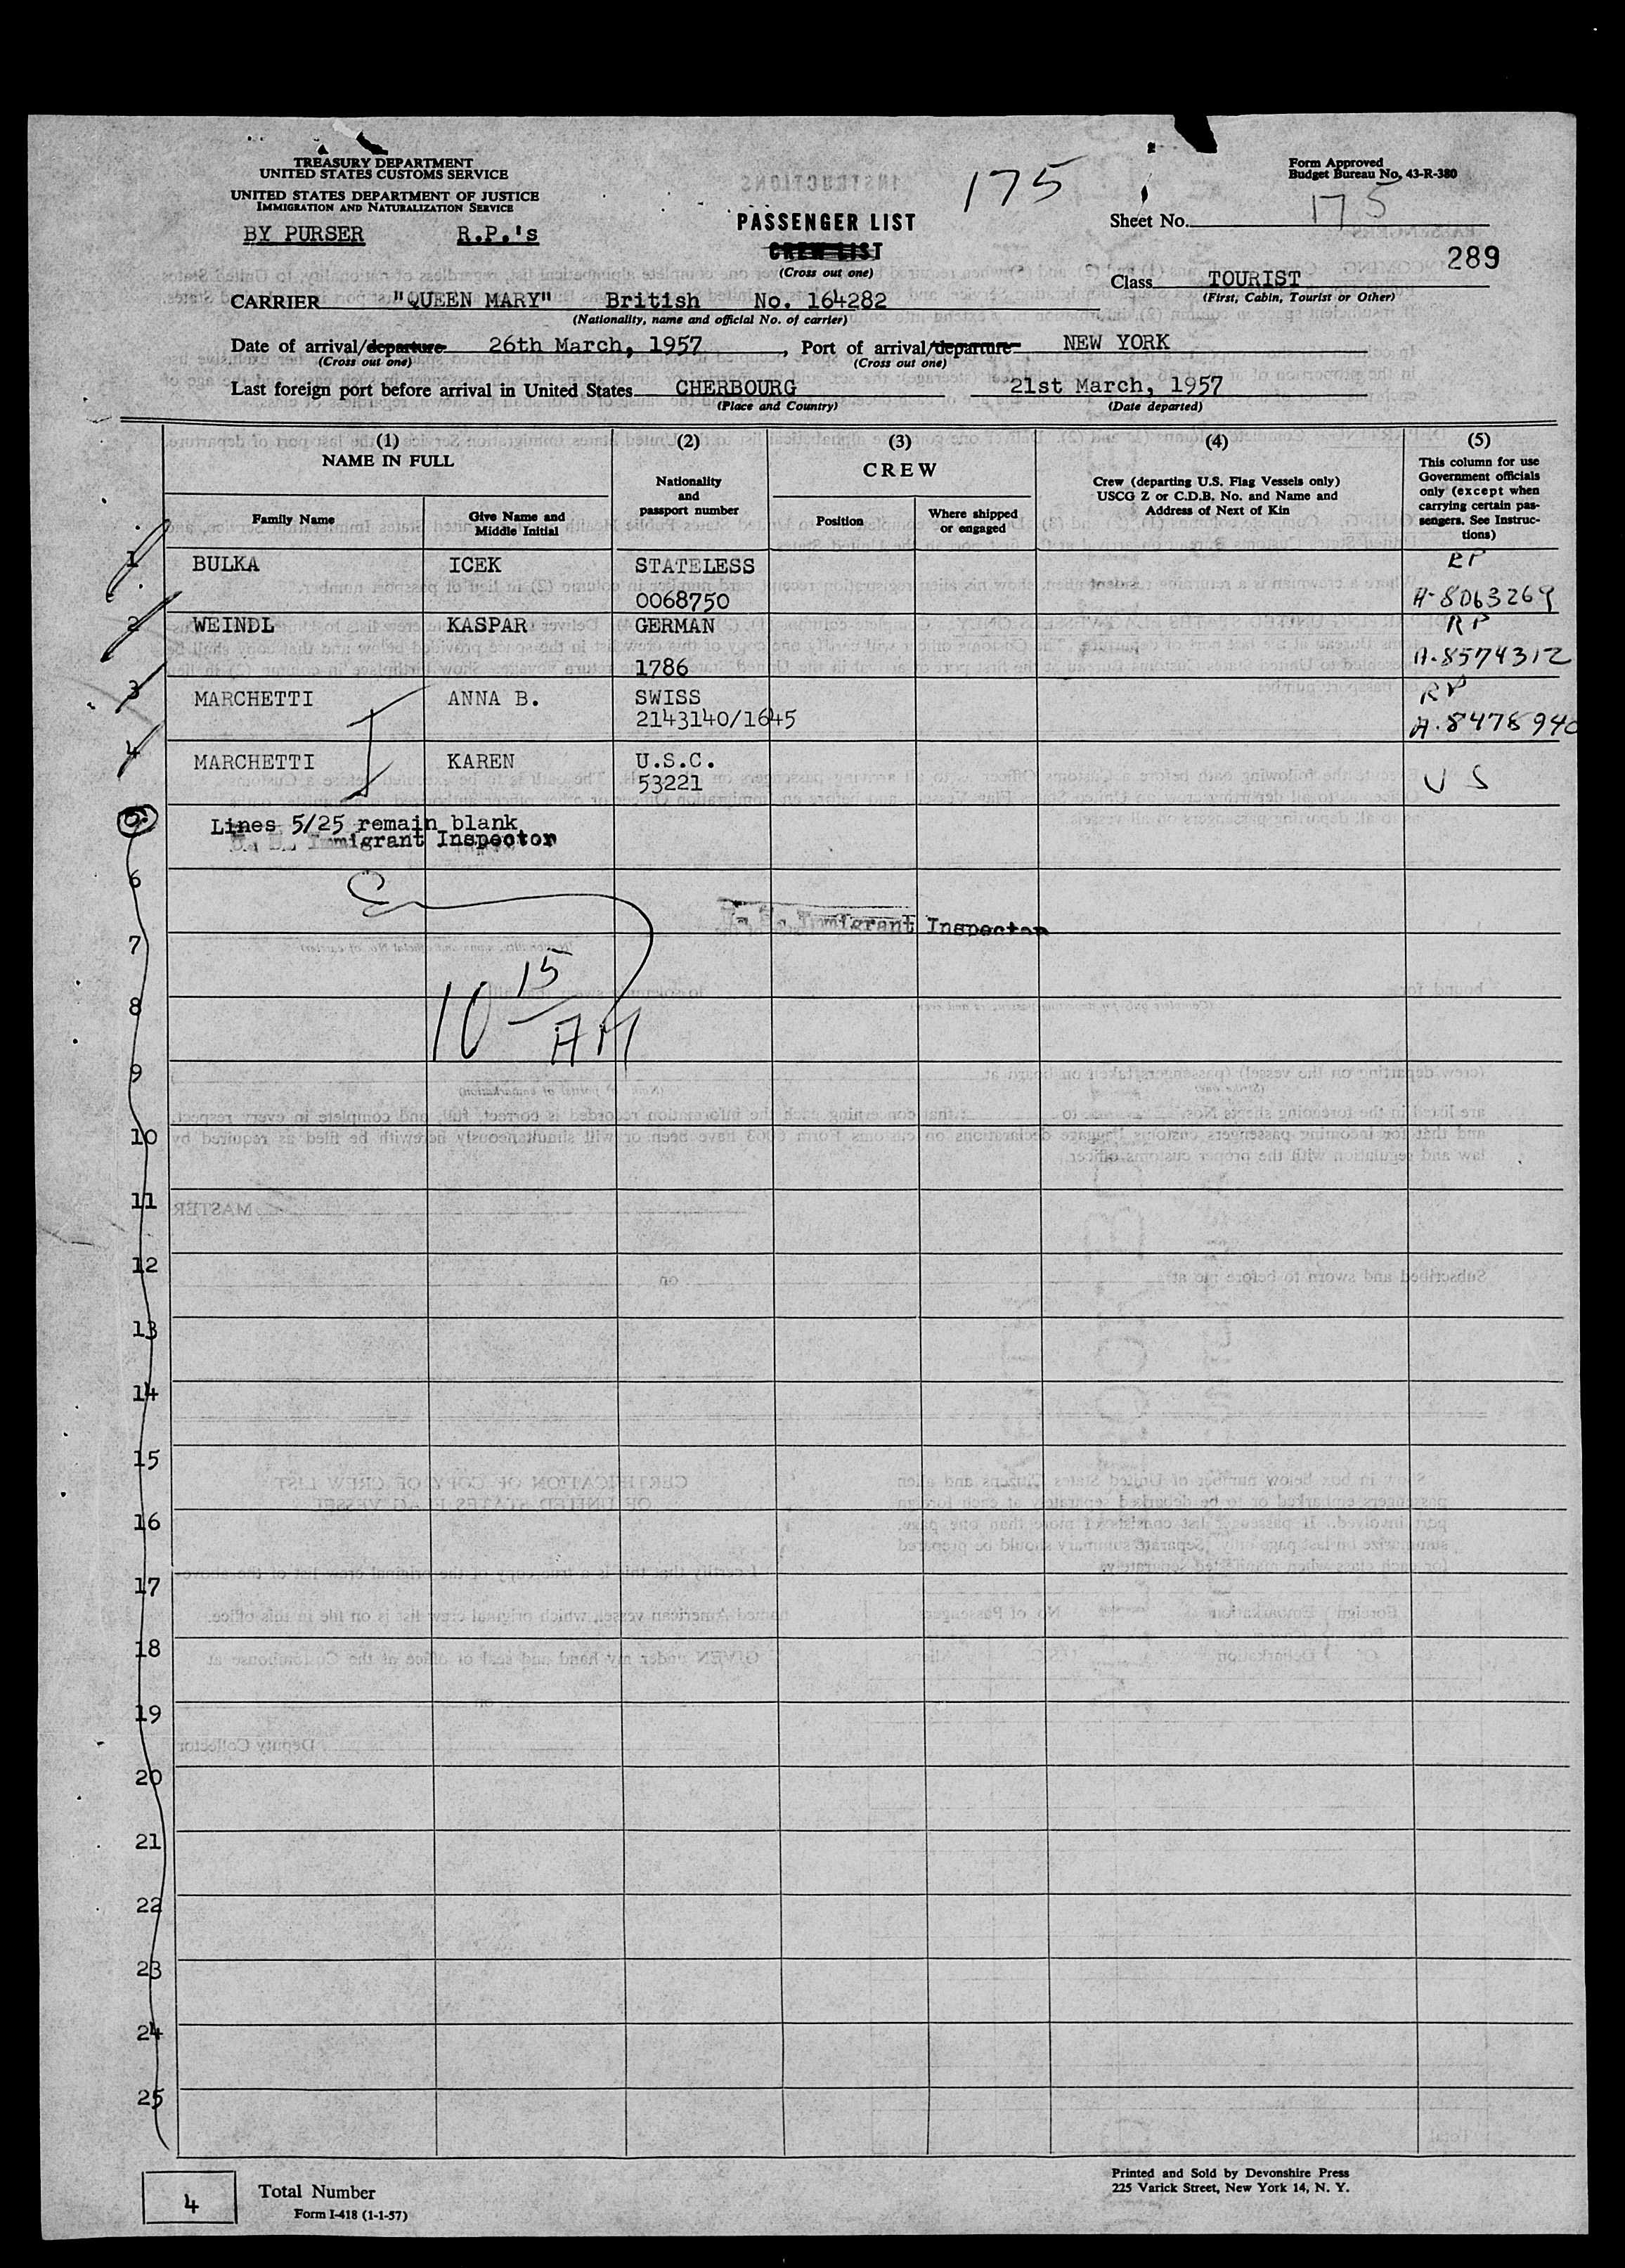 TREASURY DEPARTMENT
UNITED STATES CUSTOMS SERVICE
UNITED STATES DEPARTMENT OF JUSTICE
IMMIGRATION AND NATURALIZATION SERVICE
BY PURSER R.P.'s
175
Form Approved
Budget Bureau No. 43-R-380
PASSENGER LIST
CREW LIST
(Cross out one)
Sheet No. 175
289
Class TOURIST
(First, Cabin, Tourist or Other)
CARRIER "QUEEN MARY" British No. 164282
(Nationality, name and official No. of carrier)
Date of arrival/departure 26th March, 1957, Port of arrival/departure NEW YORK
(Cross out one) (Cross out one)
Last foreign port before arrival in United States CHERBOURG 21st March, 1957
(Place and Country) (Date departed)
(1) (2) (3) (4) (5)
NAME IN FULL
Family Name
Give Name and
Middle Initial
Nationality
and
passport number
CREW
Position
Where shipped
or engaged
Crew (departing U.S. Flag Vessels only)
USCG Z or C.D.B. No. and Name and
Address of Next of Kin
This column for use
Government officials
only (except when
carrying certain pas-
sengers. See Instruc-
tions)
1 BULKA ICEK STATELESS RP
0068750 A-8063269
2 WEINDL KASPAR GERMAN RP
1786 A-8574312
3 MARCHETTI ANNA B. SWISS RP
2143140/1645 A-8478940
4 MARCHETTI KAREN U.S.C.
53221 U S
5 Lines 5/25 remain blank
U. S. Immigrant Inspector
6
U. S. Immigrant Inspector
7
10 15 AM
8
9
10
11
12
13
14
15
16
17
18
19
20
21
22
23
24
25
4 Total Number
Form I-418 (1-1-57)
Printed and Sold by Devonshire Press
225 Varick Street, New York 14, N. Y.